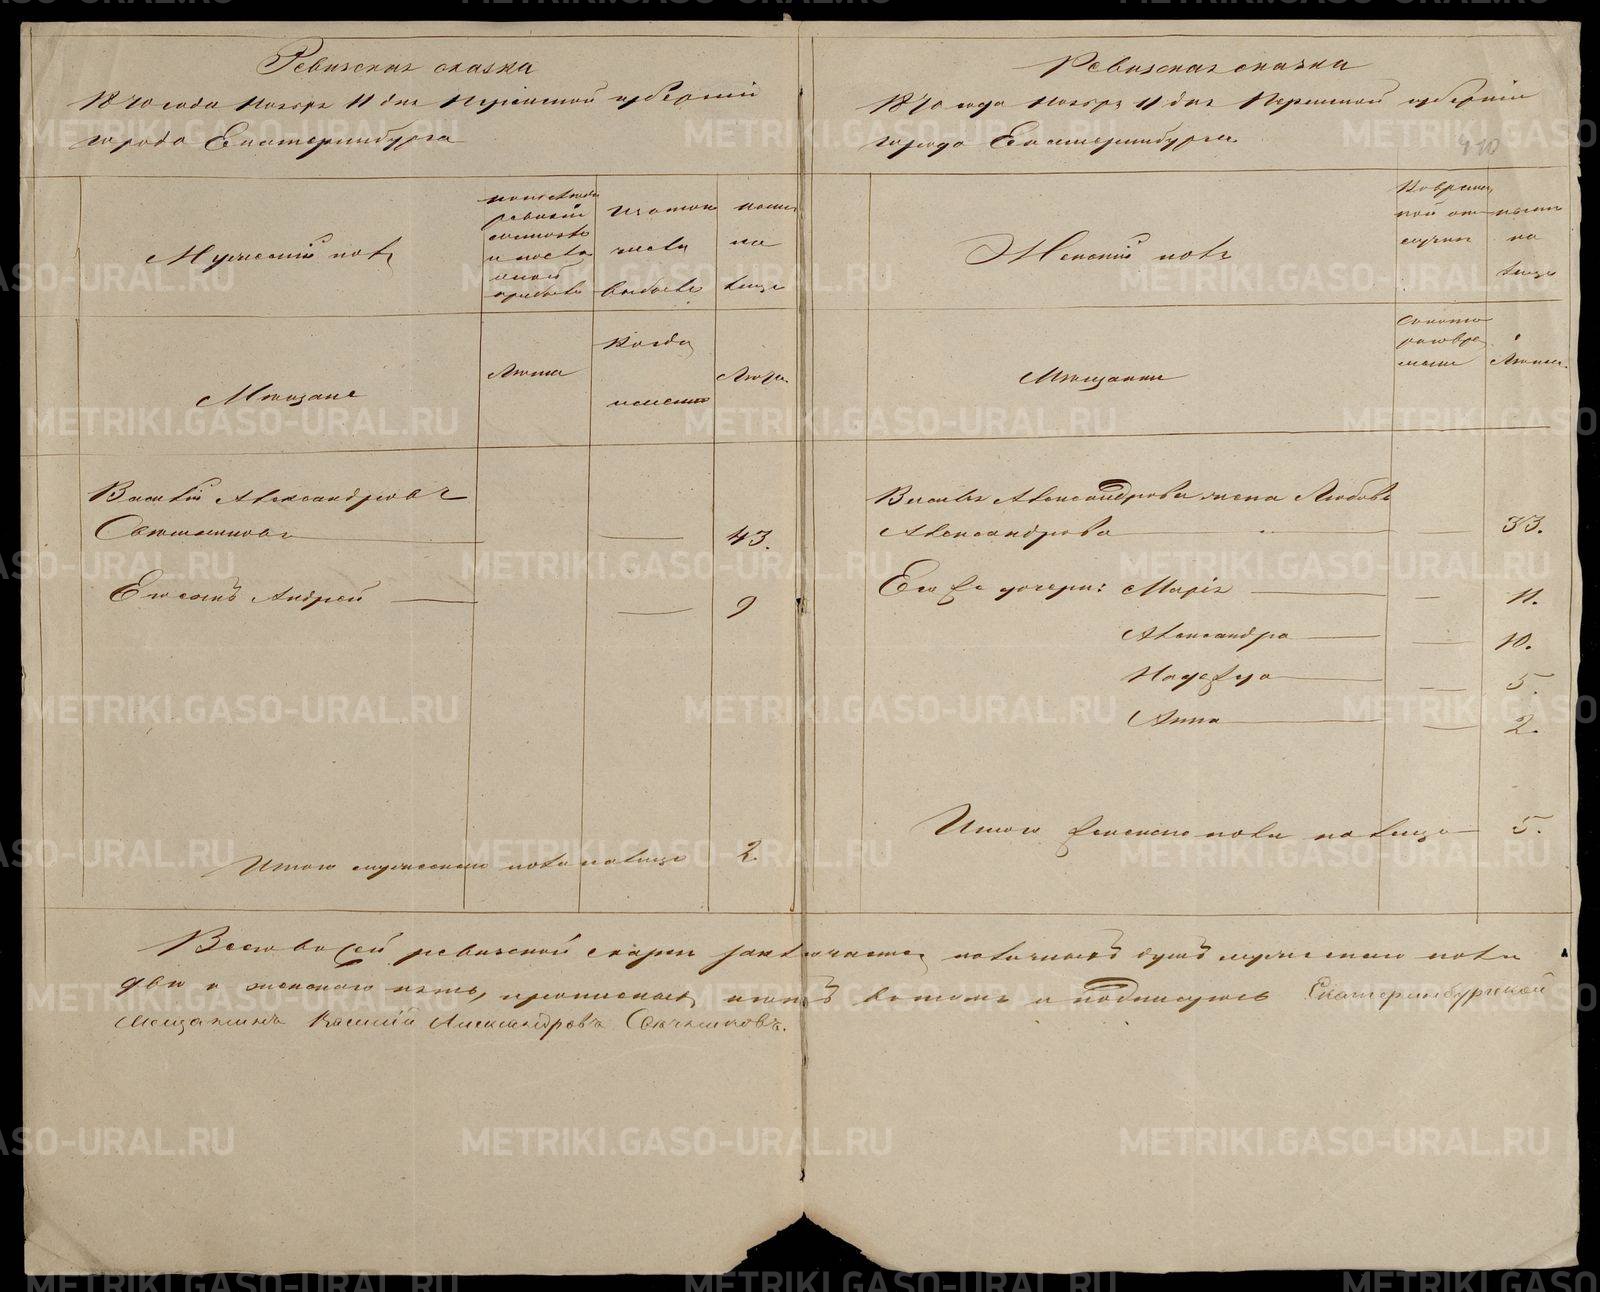 Ревизская сказка
1870 года Ноября 11 дня Пермской губернiи
города Екатеринбурга
Мужескiй полъ
ревизiи
состояло
и после
оной
прибыло
Изъ того
числа
выбыло
ныне
на
лицо
Мѣщане
Лѣта
Когда
именно
Лѣта.
Василiй Александровъ
Свѣшниковъ 43.
Его сынъ Андрей 9
Итого мужескаго пола на лицо 2.
Ревизская сказка
1870 года Ноября 11 дня Пермской губернiи
города Екатеринбурга
410
Женскiй полъ
Во времен
ной от
лучке
ныне
на
лицо
Мѣщанки
Съ кото
раго вре
мени
Лѣта.
Василья Александрова жена Любовь
Александрова 33.
Его же дочери: Марiя 11.
Александра 10.
Надежда 5.
Анна 2.
Итого женскаго пола на лицо 5.
Всего въ сей ревизской сказки заключается наличныхъ душъ мужескаго пола
два и женскаго пять, прописныхъ нѣтъ въ томъ и подписуюсь Екатеринбургской
Мещанинъ Василiй Александровъ Свѣчниковъ.
METRIKI.GASO-URAL.RU